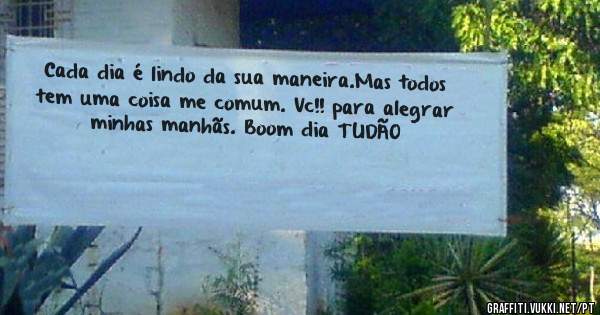 Cada dia é lindo da sua maneira.Mas todos
tem uma coisa me comum. Vc!! para alegrar
minhas manhãs. Boom dia TUDÃO
GRAFFITI.VUKKI.NET/PT